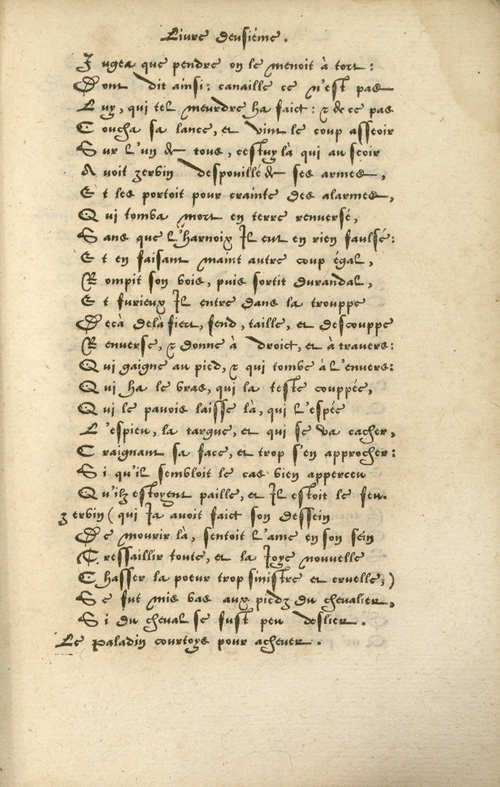 Livre deusiéme.
Jugea que pendre on le menoit à tort:
Dont dit ainsi: canaille ce n'est pas
Luy, qui tel meurdre ha faict: & de ce pas
Toucha sa lance, et vint le coup asseoir
Sur l'un de tous, cestuy là qui au soir
Avoit Zerbin despouillé de ses armes,
Et les portoit pour crainte des alarmes,
Qui tomba mort en terre renversé,
Sans que l'harnoix Il eut en rien faulsé:
Et en faisant maint autre coup égal,
Rompit son bois, puis sortit durandal,
Et furieux Il entre dans la trouppe
Deçà delà fiert, fend, taille, et descouppe
Renverse, & donne à droict, et à travers:
Qui gaigne au pied, & qui tombe à l'envers:
Qui ha le bras, qui la teste couppée,
Qui le pavois laisse là, qui l'espée
L'espieu, la targue, et qui se va cacher,
Craignant sa face, et trop s'en approcher:
Si qu'il sembloit le cas bien apperceu
Qu'ilz estoyent paille, et Il estoit le feu.
Zerbin (qui Ja avoit faict son dessein
De mourir là, sentoit l'ame en son sein
Tressaillir toute, et la Joye nouvelle
Chasser la poeur trop sinistre et cruelle;)
Se fut mis bas aux piedz du chevalier,
Si du cheval se fust peu deslier.
Le paladin courtoys pour achever.